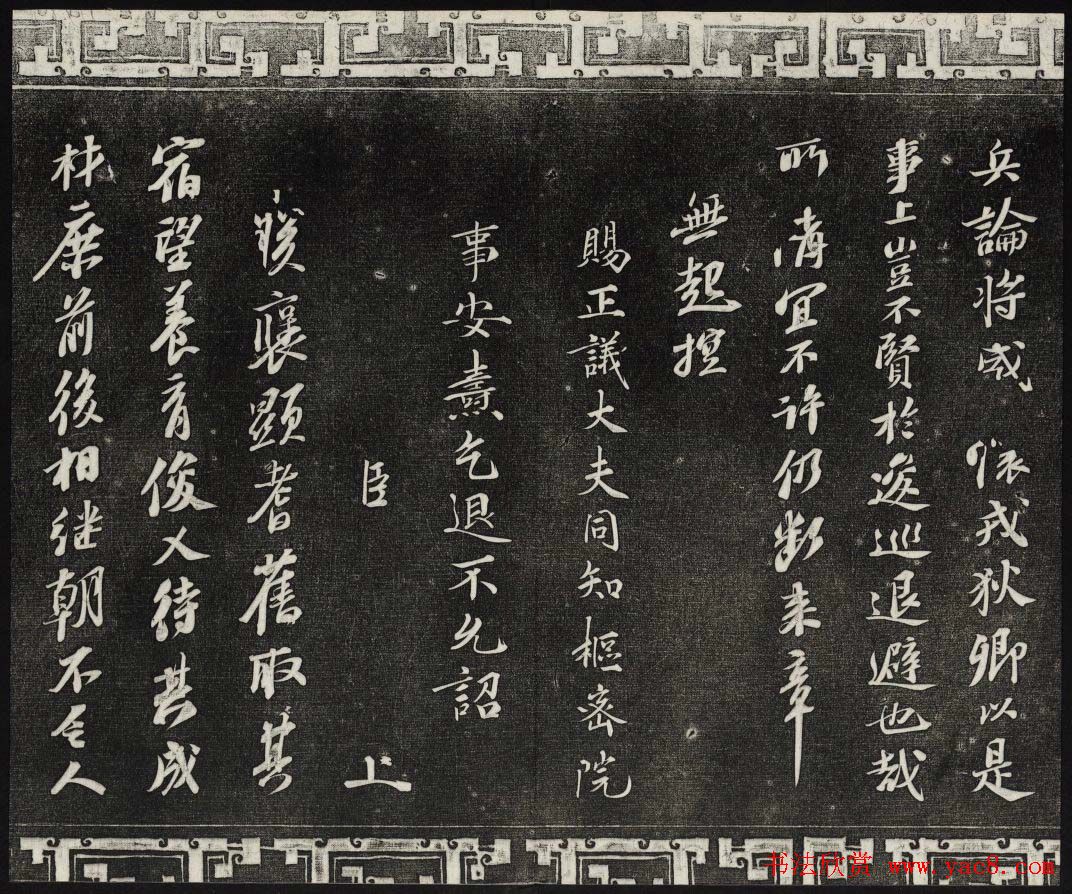 兵論將威 懷戎狄卿以是
事上豈不賢於逡巡退避也哉
所請宜不許仍斷来章
無起
賜正議大夫同知樞密院
事安燾乞退不允詔
臣 上
朕襃顯耆舊取其
宿望養育俊乂待其成
材庶前後相继朝不乏人
书法欣赏 www.yac8.com